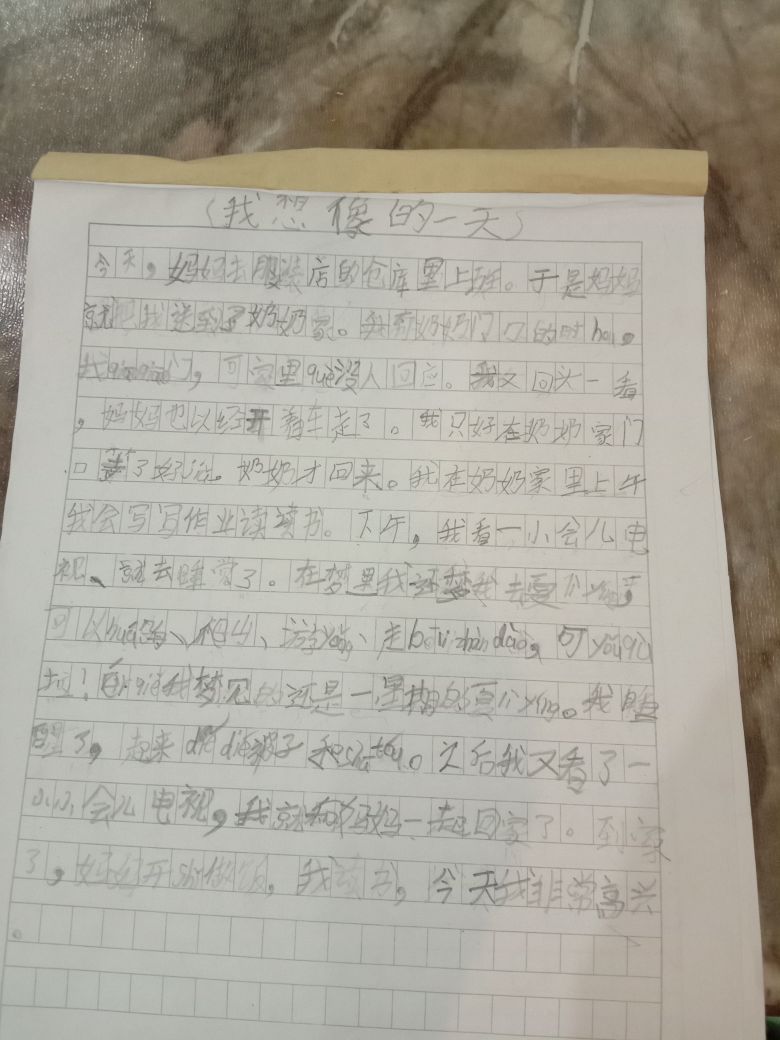 （我想像的一天）
今天，妈妈去服装店的仓库里上班。于是妈妈
就把我送到了奶奶家。我到奶奶门口的时hou。
我门，可家里què没人回应。我又回头一看
，妈妈也以经开着车走了。我只好在奶奶家门
口了好。奶奶才回来。我在奶奶家里上午
我会写写作业读读书。下午，我看一小会儿电
视、就去睡觉了。在梦里我还梦我去夏令yíng，
可以hu船、爬山、游yǒng、走bōli zhàn dào，可yǒuqù
拉！我梦见的还是一星期的夏令yíng。我睡
醒了，起来dié dié被子和chuáng。之后我又看了一
小小会儿电视，我就和妈妈一起回家了。到家
了，妈妈开shǐ做饭，我读书，今天我非常高兴
。